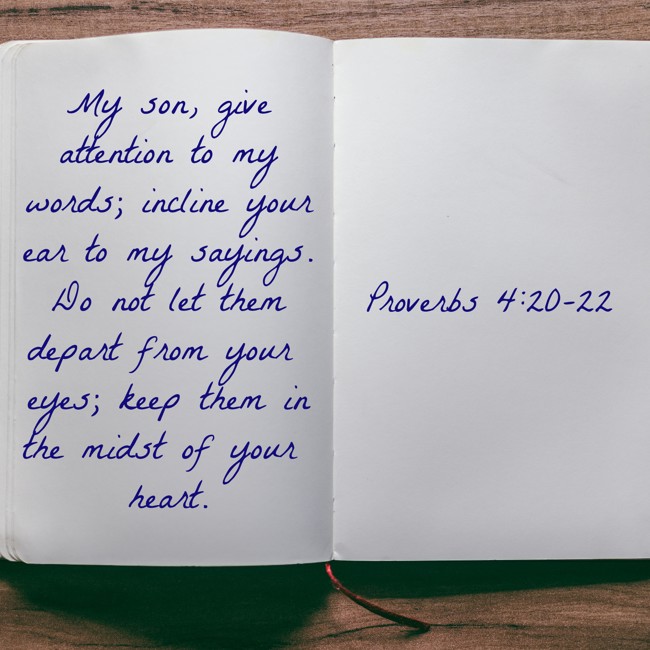 My son, give
attention to my
words; incline your
ear to my sayings.
Do not let them
depart from your
eyes; keep them in
the midst of your
heart.
Proverbs 4:20-22